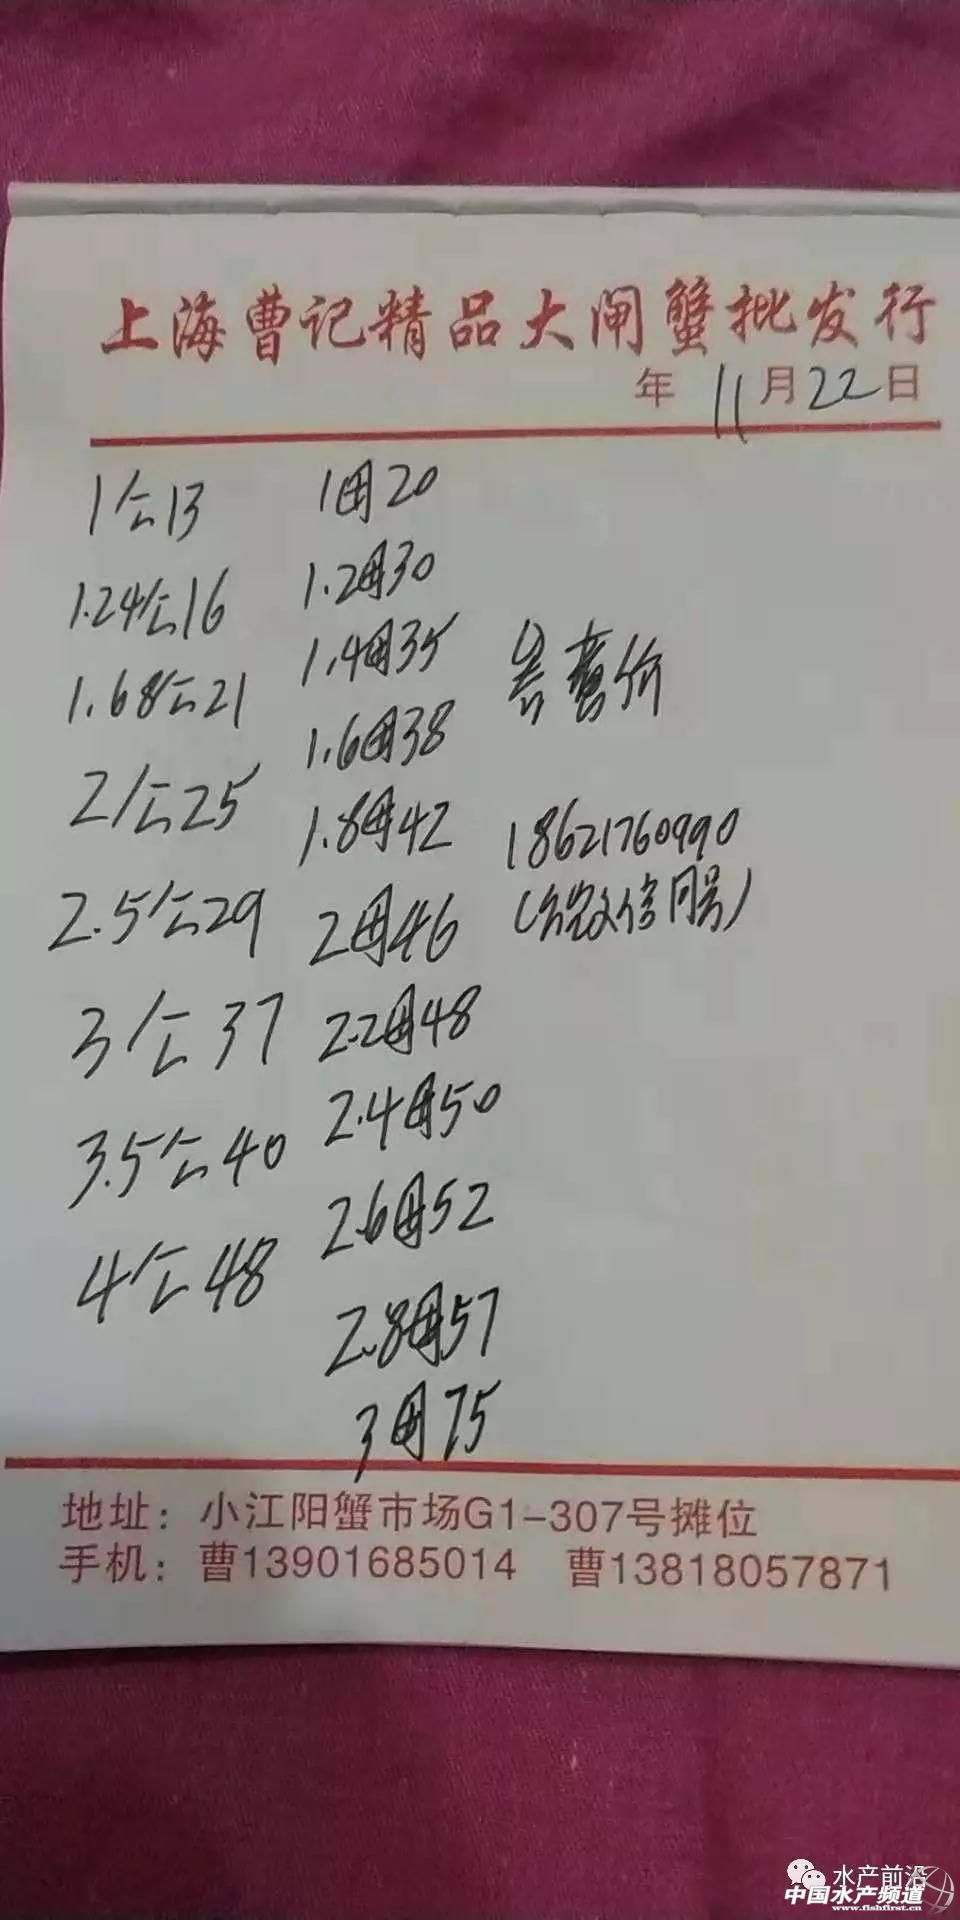 上海曹记精品大闸蟹批发行
年 11月22日
1公13
1.24公16
1.68公21
2公25
2.5公29
3公37
3.5公40
4公48
1母20
1.2母30
1.4母35
1.6母38
1.8母42
2母46
2.2母48
2.4母50
2.6母52
2.8母57
3母75
价
18621760990
微信同号)
地址：小江阳蟹市场G1-307号摊位
手机：曹13901685014 曹13818057871
水产前沿
中国水产频道
www.fishfirst.cn